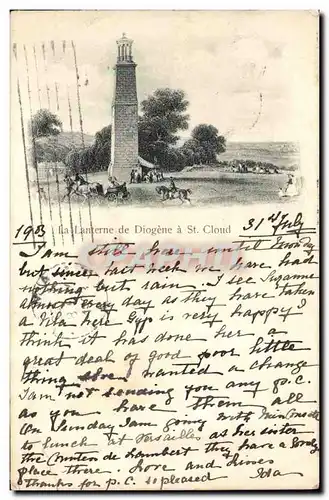 La Lanterne de Diogène à St. Cloud
1903 31st July
I am still here until Monday
but since last week we have had
nothing but rain. I see Suzanne
almost every day as they have taken
a Villa here Gyp is very happy I
think it has done her a
great deal of good poor little
thing she wanted a change
I am not sending you any p.c.
as you have them all
On Sunday I am going with
to lunch at Versailles as her sister
the de Lambert they have a lovely
place there. Love and kisses
thanks for p.c. so pleased Ida